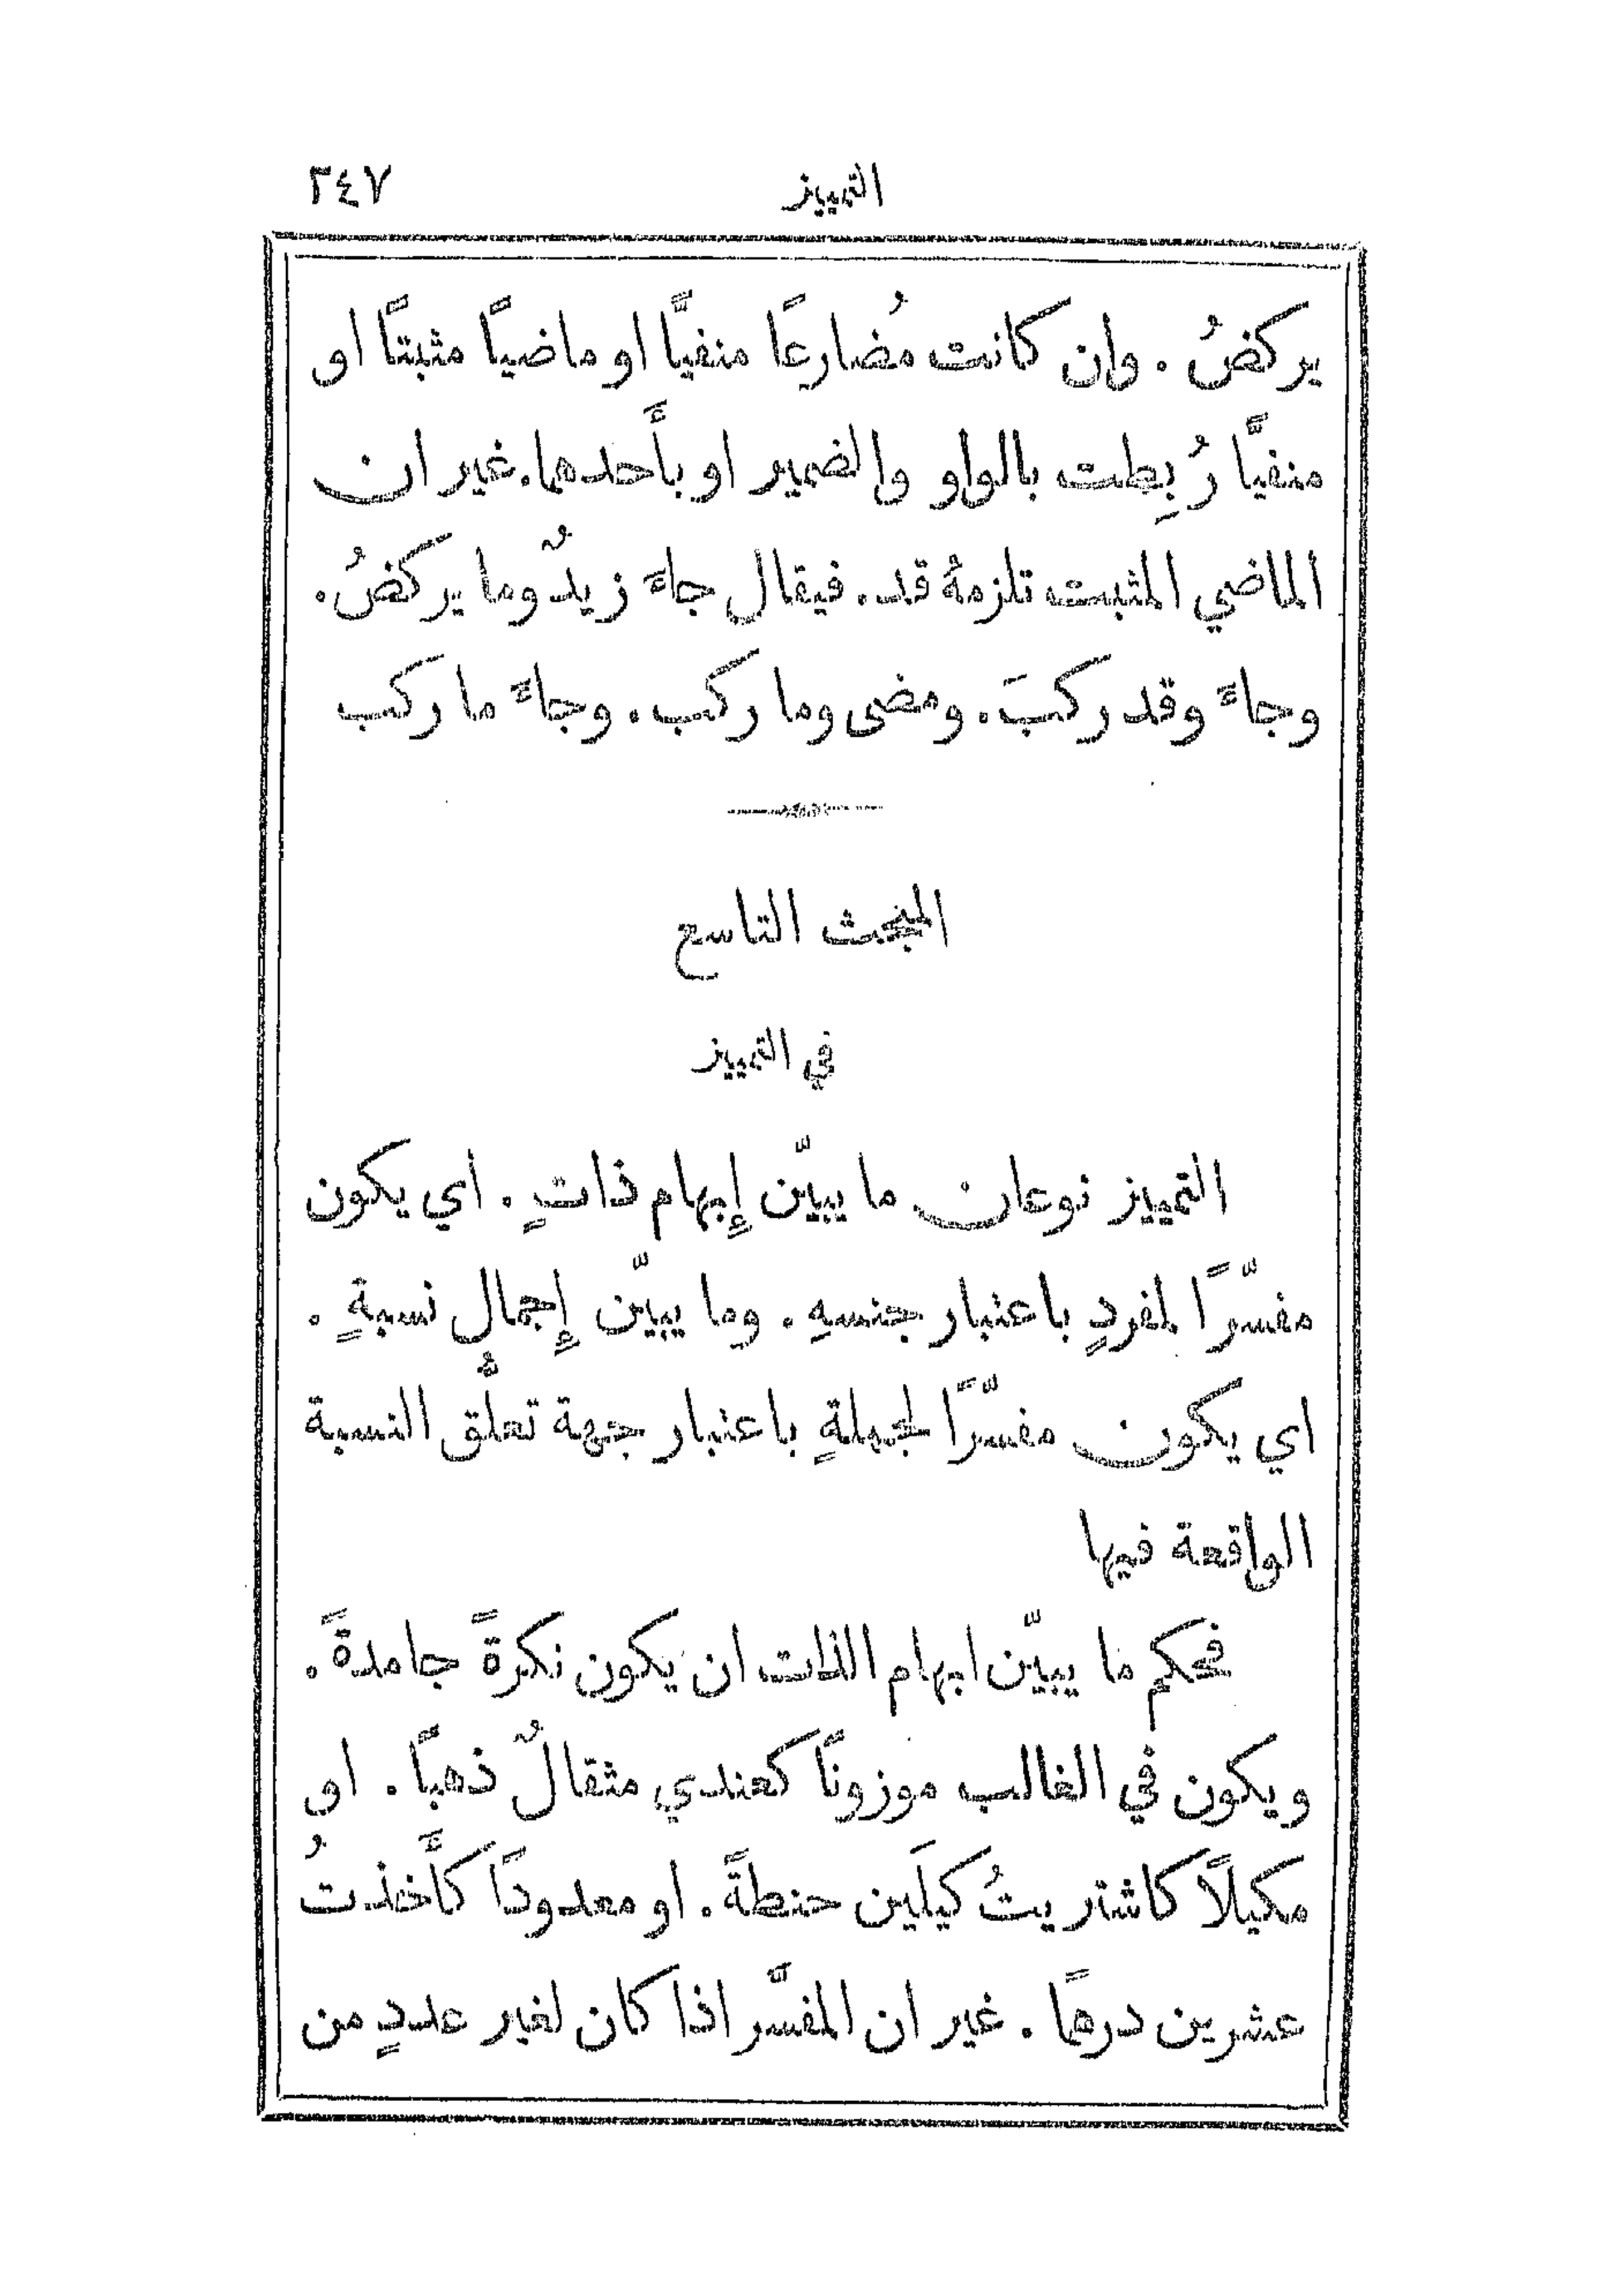 التمييز ٢٤٧
يركضُ . وان كانت مُضارعًا منفيًّا او ماضيًا مثبتًا او
منفيًّا رُبِطت بالواو والضمير او بأَحدهما. غير ان
الماضي المثبت تلزمهُ قد. فيقال جاءَ زيدٌ وما يركضُ.
وجاءَ وقد ركبَ. ومضى وما ركب. وجاءَ ما ركب
المبحث التاسع
في التمييز
التمييز نوعان ما يبيّن إِبهام ذاتٍ . اي يكون
مفسّرًا لمفردٍ باعتبار جنسهِ . وما يبيّن إِجمال نسبةٍ .
اي يكون مفسّرًا لجملةٍ باعتبار جهة تعلُّق النسبة
الواقعة فيها
فحكم ما يبيّن ابهام الذات ان يكون نكرةً جامدةً .
ويكون في الغالب موزونًا كعندي مثقالٌ ذهبًا . او
مكيلًا كاشتريتُ كيلَين حنطةً . او معدودًا كأَخذتُ
عشرين درهمًا . غير ان المفسَّر اذا كان لغير عددٍ من